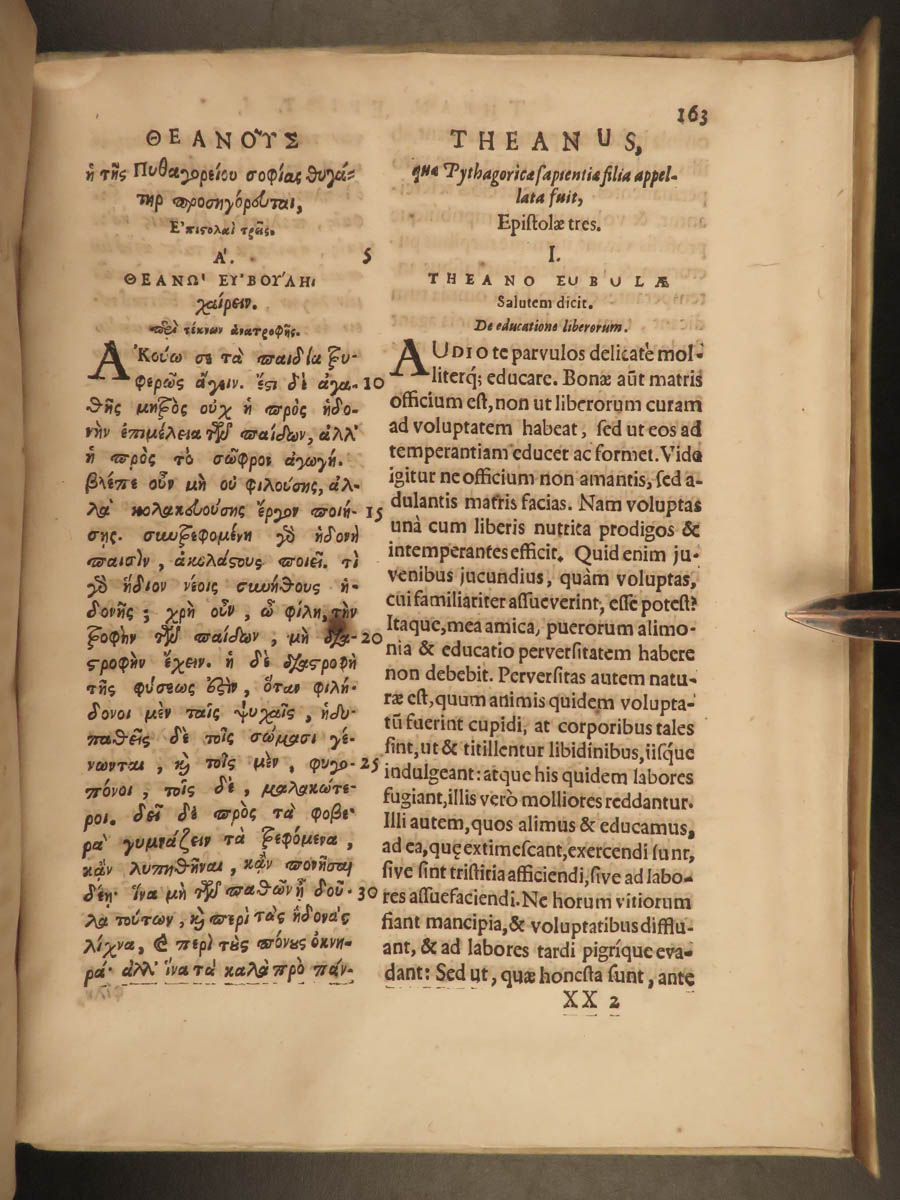 163
ΘΕΑΝΟΥ͂Σ
ἡ τῆς Πυθαγορείου σοφίας θυγά-
τηρ προσηγόρευται,
Ἐπιστολαὶ τρεῖς.
Α'.
ΘΕΑΝΩ' ΕΥ'ΒΟΎΛΗι
χαίρειν.
περὶ τέκνων ἀνατροφῆς.
ἈΚούω σε τὰ παιδία τρυ-
φερῶς ἄγειν. ἔστι δὲ ἀγα-
θῆς μητρὸς οὐχ ἡ πρὸς ἡδο-
νὴν ἐπιμέλεια τῶν παίδων, ἀλλ'
ἡ πρὸς τὸ σῶφρον ἀγωγή.
βλέπε οὖν μὴ οὐ φιλούσης, ἀλ-
λὰ κολακευούσης ἔργον ποιή-
σῃς. συντρεφομένη γὸ ἡδονὴ
παισὶν, ἀκολάστους ποιεῖ. τὶ
γὸ ἥδιον νέοις συνήθους ἡ-
δονῆς; χρὴ οὖν, ὦ φίλη, τὴν
τροφὴν τῶν παίδων, μὴ δια-
στροφὴν ἔχειν. ἡ δὲ διαστροφὴ
τῆς φύσεως ἐξὴν, ὅταν φιλή-
δονοι μὲν ταῖς ψυχαῖς, ἡδυ-
παθεῖς δὲ τοῖς σώμασι γέ-
νωνται, καὶ τοῖς μὲν, φυγο-
πόνοι, τοῖς δὲ, μαλακώτε-
ροι. δεῖ δὲ πρὸς τὰ φοβε-
ρὰ γυμνάζειν τὰ τρεφόμενα,
κἂν λυπηθῆναι, κἂν πονῆσαι
δέῃ· ἵνα μὴ τῶν παθῶν ᾖ δοῦ-
λα τούτων, καὶ περὶ τὰς ἡδονὰς
λίχνα, καὶ περὶ τοὺς πόνους ὀκνη-
ρά· ἀλλ' ἵνα τὰ καλὰ πρὸ πάν-
5
10
15
20
25
30
THEANUS,
quæ Pythagoricæ sapientiæ filia appel-
lata fuit,
Epistolæ tres.
I.
THEANO EUBULÆ
Salutem dicit.
De educatione liberorum.
AUDIO te parvulos delicatè mol-
literq; educare. Bonæ aūt matris
officium est, non ut liberorum curam
ad voluptatem habeat, sed ut eos ad
temperantiam educet ac formet. Vide
igitur ne officium non amantis, sed a-
dulantis matris facias. Nam voluptas
unà cum liberis nutrita prodigos &
intemperantes efficit. Quid enim ju-
venibus jucundius, quàm voluptas,
cui familiariter assueverint, esse potest?
Itaque, mea amica, puerorum alimo-
nia & educatio perversitatem habere
non debebit. Perversitas autem natu-
ræ est, quum animis quidem volupta-
tū fuerint cupidi, at corporibus tales
sint, ut & titillentur libidinibus, iisque
indulgeant: atque his quidem labores
fugiant, illis verò molliores reddantur.
Illi autem, quos alimus & educamus,
ad ea, quę extimescant, exercendi sunt,
sive sint tristitia afficiendi, sive ad labo-
res assuefaciendi. Ne horum vitiorum
fiant mancipia, & voluptatibus difflu-
ant, & ad labores tardi pigríque eva-
dant: Sed ut, quæ honesta sunt, ante
XX 2